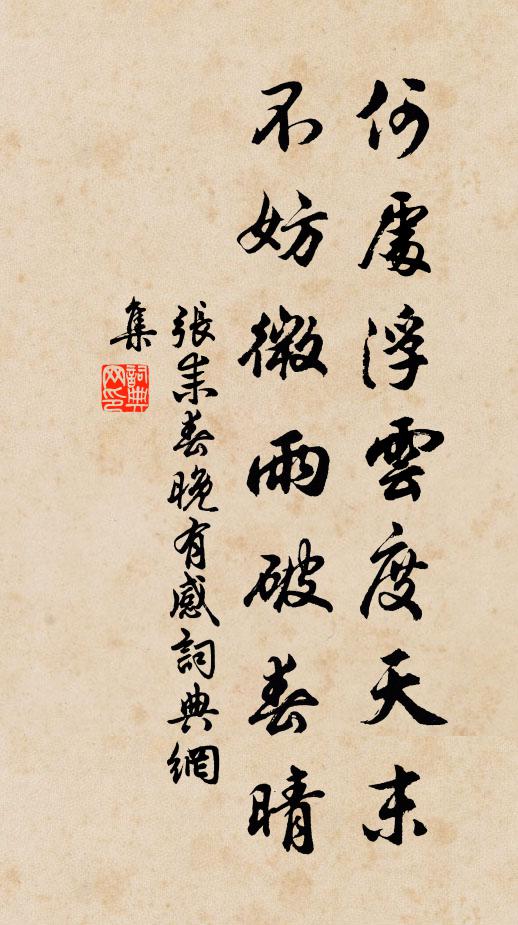 何處浮雲度天末
不妨微雨破春晴
張耒春晚有感詞典網
集
詞典网印